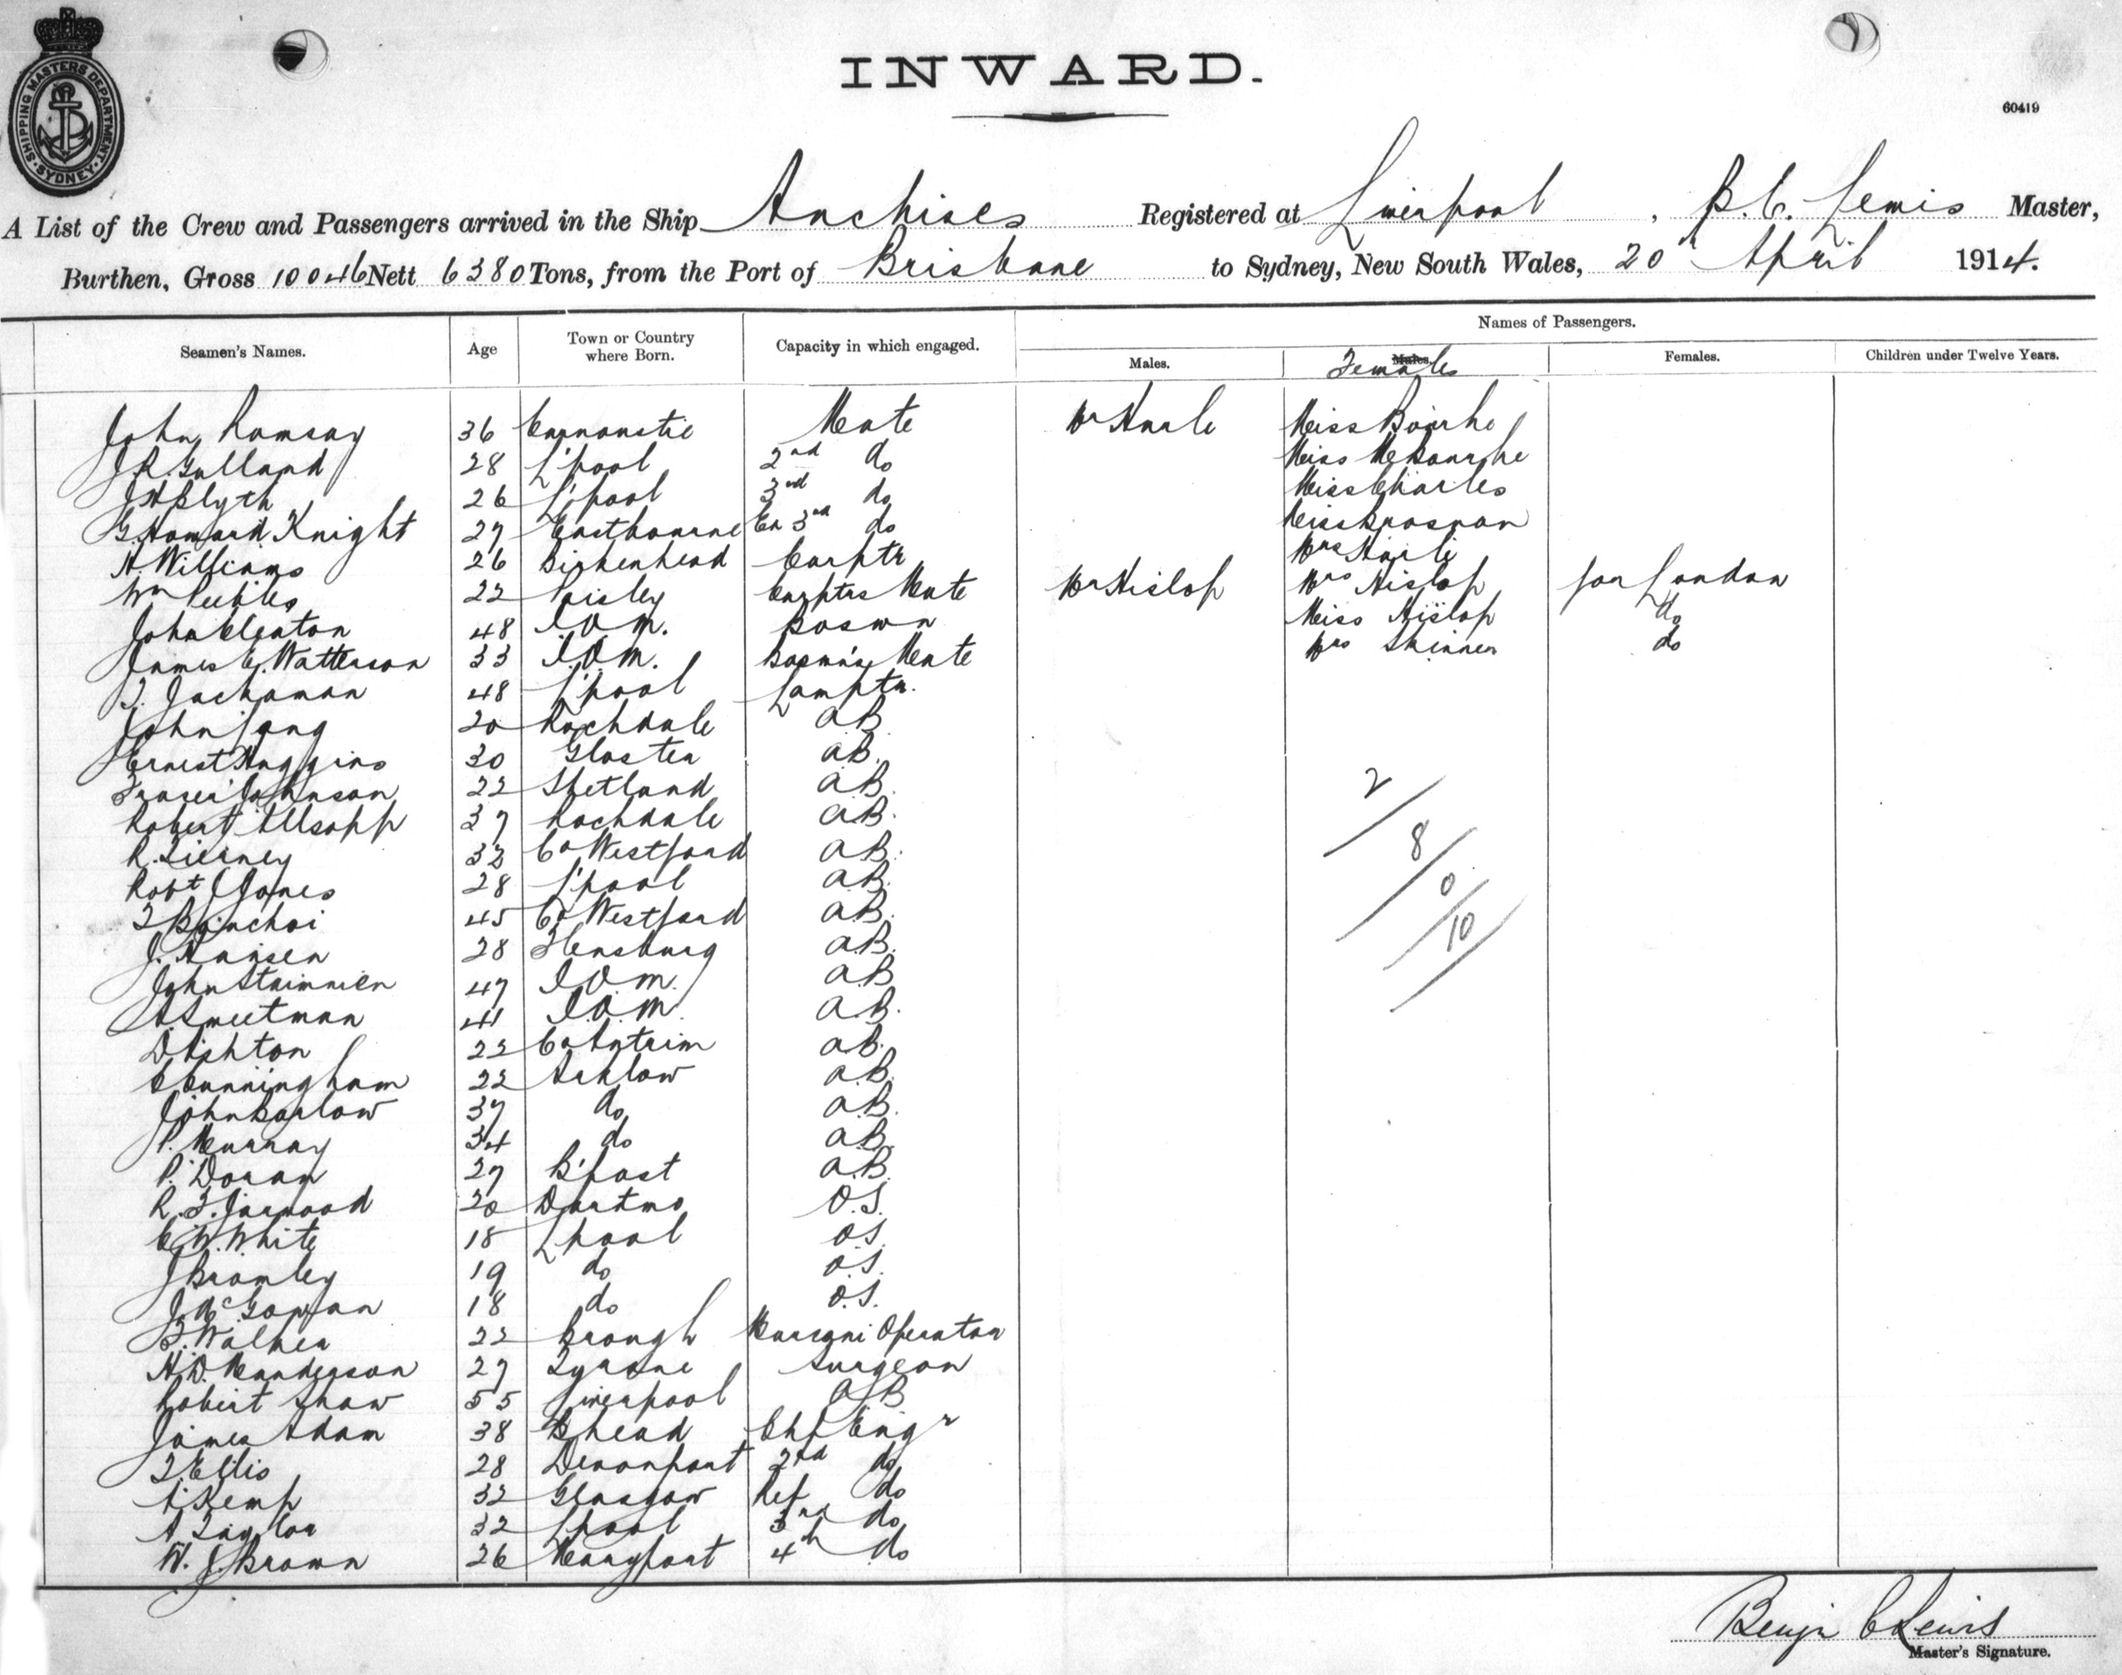 SHIPPING MASTERS DEPARTMENT · SYDNEY ·
INWARD.
60419
A List of the Crew and Passengers arrived in the Ship Anchises Registered at Liverpool, B. C. Lewis Master,
Burthen, Gross 10046 Nett 6380 Tons, from the Port of Brisbane to Sydney, New South Wales, 20th April 1914.
Names of Passengers.
Seamen's Names. Age Town or Country where Born. Capacity in which engaged. Males. Males. Females Females. Children under Twelve Years.
John Ramsay 36 Carnoustie Mate Mr Harle Miss Bourke
J R Gulland 28 L'pool 2nd do Miss M Bourke
J H Blyth 26 L'pool 3rd do Miss Charles
G. Howard Knight 27 Eastbourne Ex 3rd do Miss Brosnan
H Williams 26 Birkenhead Carptr Mrs Harle
Wm Peebles 22 Paisley Carptrs Mate Mr Hislop Mrs Hislop for London
John Cleator 48 I.O.M. Boswn Miss Hislop do
James E. Watterson 33 I.O.M. Boswn's Mate Mrs Skinner do
48 L'pool Lamptr.
John Long 20 Rochdale AB
Ernest Huggins 30 Gloster AB.
Fraser Johnson 22 Shetland A.B. 2
Robert Allsopp 37 Rochdale AB.
R. Tierney 32 Co Westford AB. 8
Robt J Jones 28 L'pool AB. 0
45 Co Westford AB. 10
J. Hansen 28 Flensburg AB.
John 47 I.O.M. AB
A Sweetman 41 I.O.M. AB.
D Ashton 22 Co Antrim AB.
C Cunningham 22 Arklow AB.
John Barlow 37 do A.B.
P. Murray 34 do AB.
P. Doran 27 B'fast AB.
R. F. Jarwood 20 Dartmo O.S.
C. W. White 18 L'pool O.S.
J Bromley 19 do O.S.
J. McGowan 18 do O.S.
F. Walker 22 Brough Marconi Operator
H. D. Manderson 27 Tyrone Surgeon
Robert Shaw 55 Liverpool AB
James Adam 38 B'head Chf Engr
T. Ellis 28 Devonport 2nd do
A. Kemp 32 Glasgow Ref do
A Taylor 32 L'pool 3rd do
W. J. Brown 26 Maryport 4th do
Benjn C Lewis
Master's Signature.